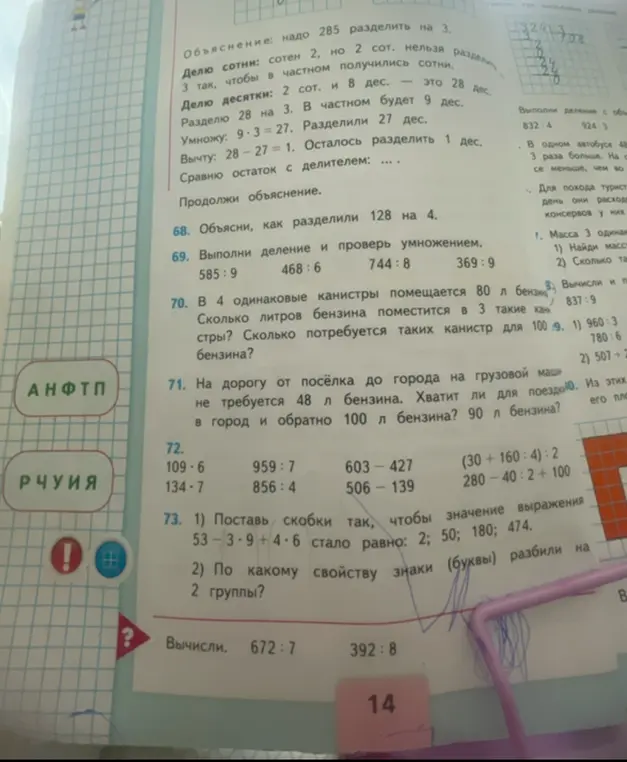 Объяснение: надо 285 разделить на 3.
Делю сотни: сотен 2, но 2 сот. нельзя разделить
3 так, чтобы в частном получились сотни.
Делю десятки: 2 сот. и 8 дес. — это 28 дес.
Разделю 28 на 3. В частном будет 9 дес.
Умножу: 9 · 3 = 27. Разделили 27 дес.
Вычту: 28 − 27 = 1. Осталось разделить 1 дес.
Сравню остаток с делителем: ... .
Продолжи объяснение.
68. Объясни, как разделили 128 на 4.
69. Выполни деление и проверь умножением.
585 : 9 468 : 6 744 : 8 369 : 9
70. В 4 одинаковые канистры помещается 80 л
Сколько литров бензина поместится в 3 такие
стры? Сколько потребуется таких канистр для 100
бензина?
71. На дорогу от посёлка до города на грузовой маши
не требуется 48 л бензина. Хватит ли для
в город и обратно 100 л бензина? 90 л бензина?
72.
109 · 6 959 : 7 603 − 427 (30 + 160 : 4) : 2
134 · 7 856 : 4 506 − 139 280 − 40 : 2 + 100
73. 1) Поставь скобки так, чтобы значение выражения
53 − 3 · 9 + 4 · 6 стало равно: 2; 50; 180; 474.
2) По какому свойству знаки (буквы) разбили на
2 группы?
АНФТП
РЧУИЯ
!
?
Вычисли. 672 : 7 392 : 8
14
Выполни деление с
832 : 4 924 : 3
В одном автобусе
3 раза больше. На
се меньше, чем во
Для похода
день они
консервов у них
Масса 3
1) Найди
2) Сколько
Вычисли и
837 : 9
9. 1) 960 : 3
780 : 6
2) 507 +
Из этих
его